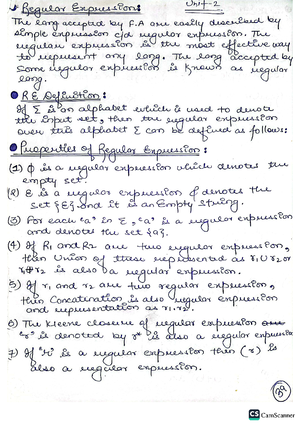 Regular Expression: Unit-2
The lang accepted by F.A are easily described by
simple expression c/d regular expression. The
regular expression is the most effective way
to represent any lang. The lang accepted by
some regular expression is known as regular
lang.
R.E Definition:
If Σ is an alphabet which is used to denote
the input set, then the regular expression
over this alphabet Σ can be defined as follows:
Properties of Regular Expression:
(1) ϕ is a regular expression which denotes the
empty set
(2) ε is a regular expression & denotes the
set {ε} and it is an Empty String.
(3) For each "a" in Σ, "a" is a regular expression
and denotes the set {a}.
(4) If R1 and R2 are two regular expression,
then Union of these represented as r1 U r2 or
r1+r2 is also a regular expression.
5) If r1 and r2 are two regular expression,
then Concatination is also regular expression
and representation as r1.r2.
6) The kleene closure of regular expression
"r" is denoted by r* is also a regular expression
7) If "r" is a regular expression then (r) is
also a regular expression.
CS CamScanner